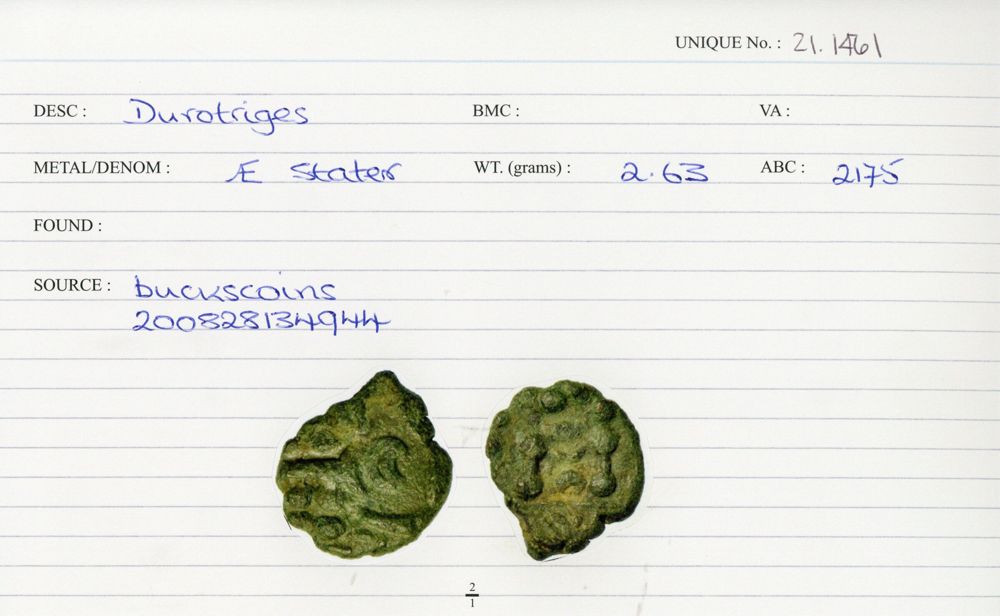 UNIQUE No. : 21.1461
DESC : Durotriges BMC : VA :
METAL/DENOM : Æ Stater WT. (grams) : 2.63 ABC : 2175
FOUND :
SOURCE : buckscoins
200828134944
2
1